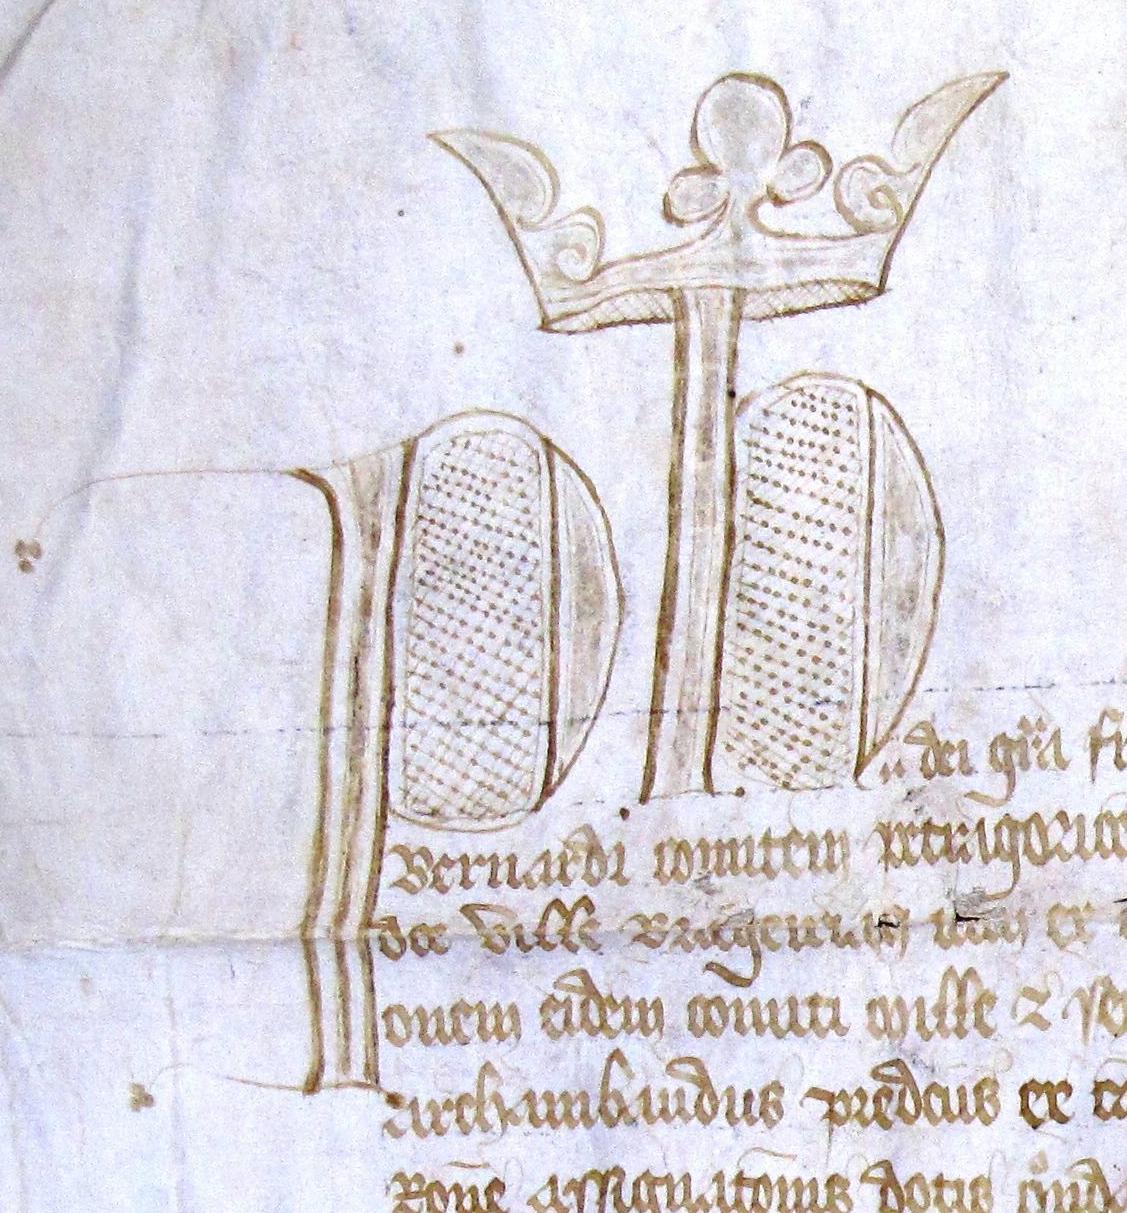 Ph. dei gr̃a fr
Bernardi comitem petragorice
dce ville Brageriacũ nũc ex
onem eidem comiti mille ⁊ se
archambaudus predcũs ex c
Rone assignatõnis dotis